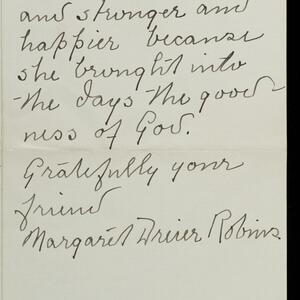 and stronger and
happier because
she brought into
the days the good-
ness of God.
Gratefully your
friend
Margaret Dreier Robins.